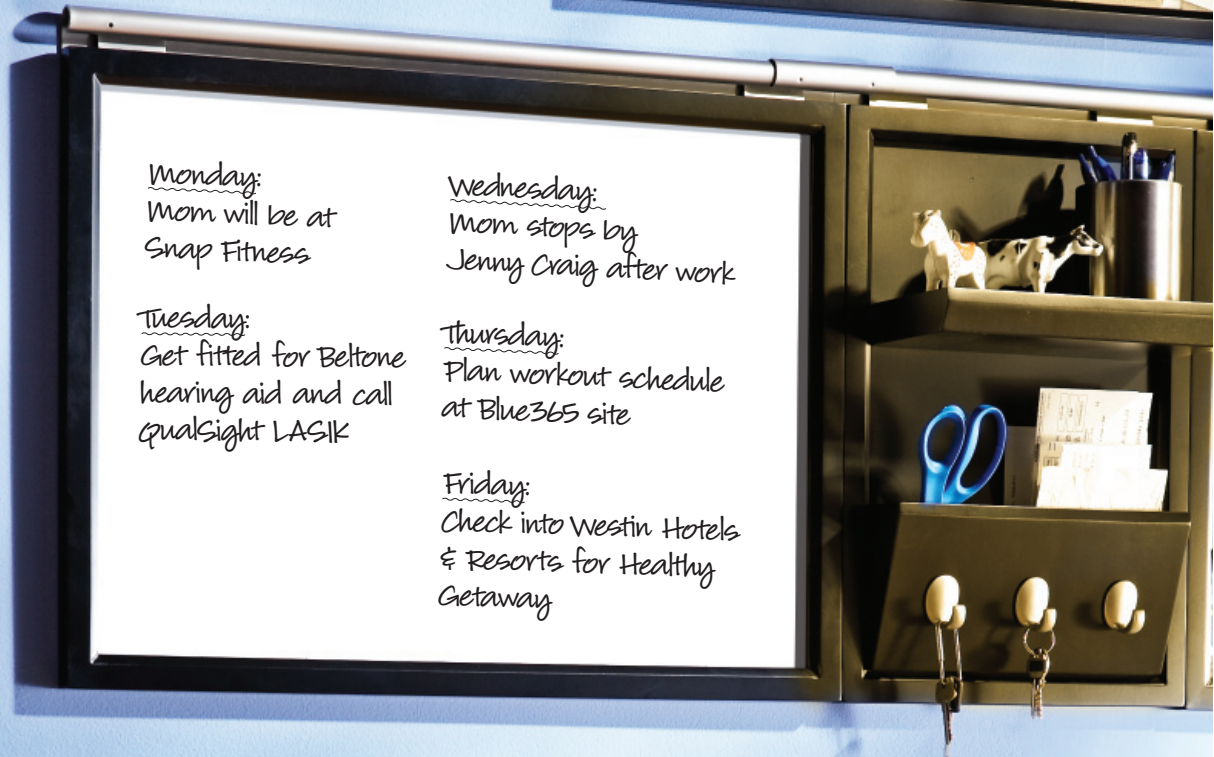 Monday:
Mom will be at
Snap Fitness
Tuesday:
Get fitted for Beltone
hearing aid and call
QualSight LASIK
Wednesday:
Mom stops by
Jenny Craig after work
Thursday:
Plan workout schedule
at Blue365 site
Friday:
Check into Westin Hotels
& Resorts for Healthy
Getaway